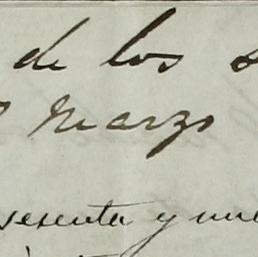 de los
Marzo
sesenta y nue